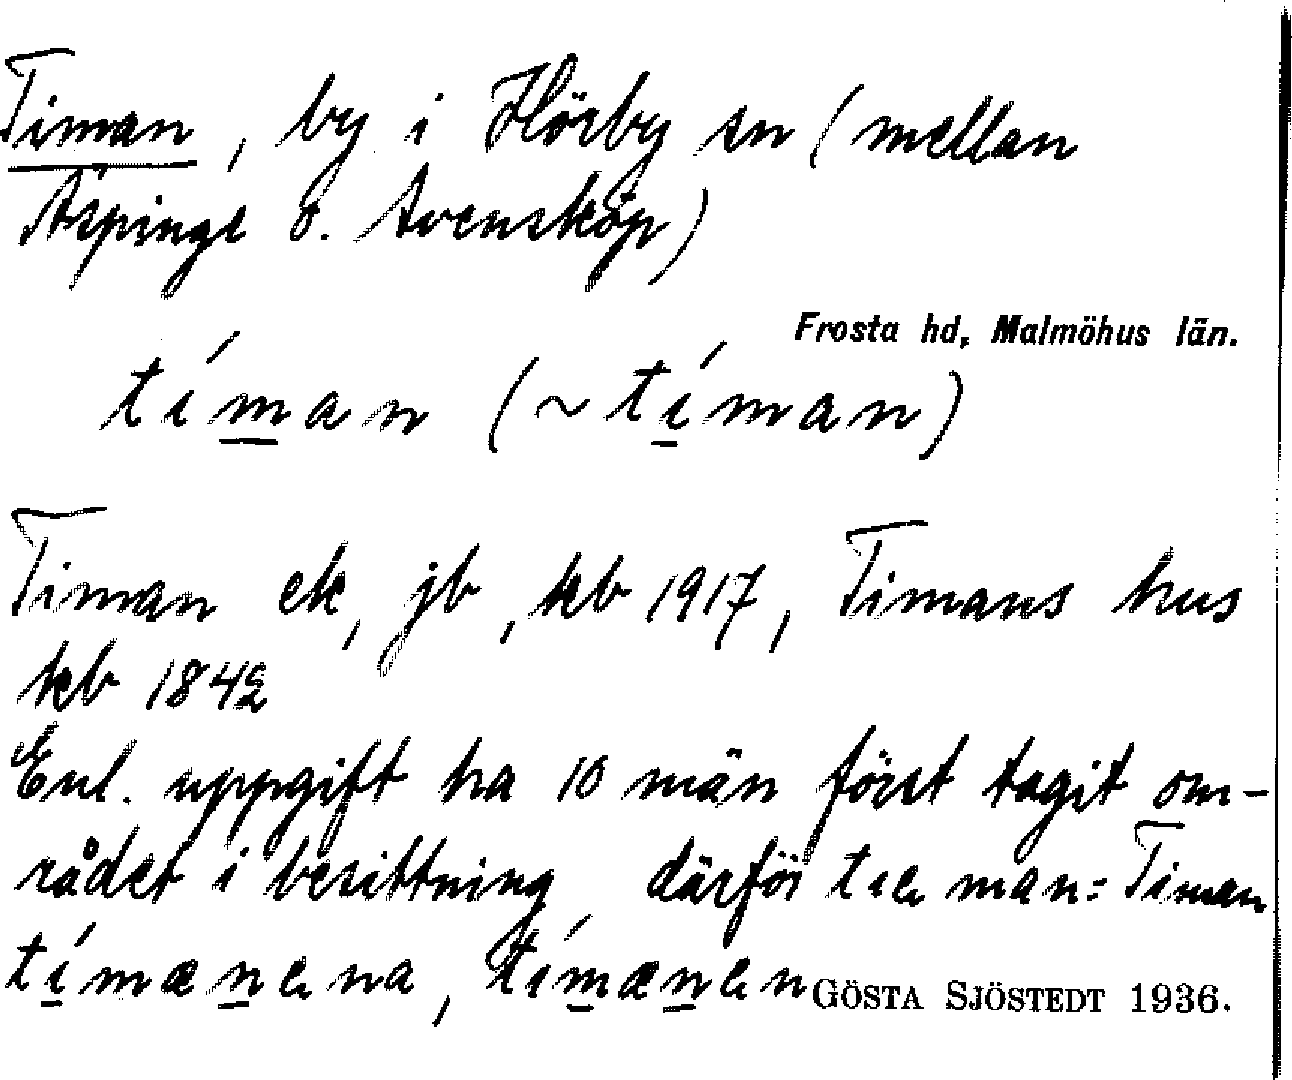 Timan, by i Hörby sn (mellan
Äspinge o. Svensköp)
Frosta hd, Malmöhus län.
tı́man (~ tı́man)
Timan ek, jb, kb 1917, Timans hus
kb 1842
Enl. uppgift ha 10 män först tagit om-
rådet i besittning därför tıe man = Timan
tı́mænena, tı́mænen GÖSTA SJÖSTEDT 1936.